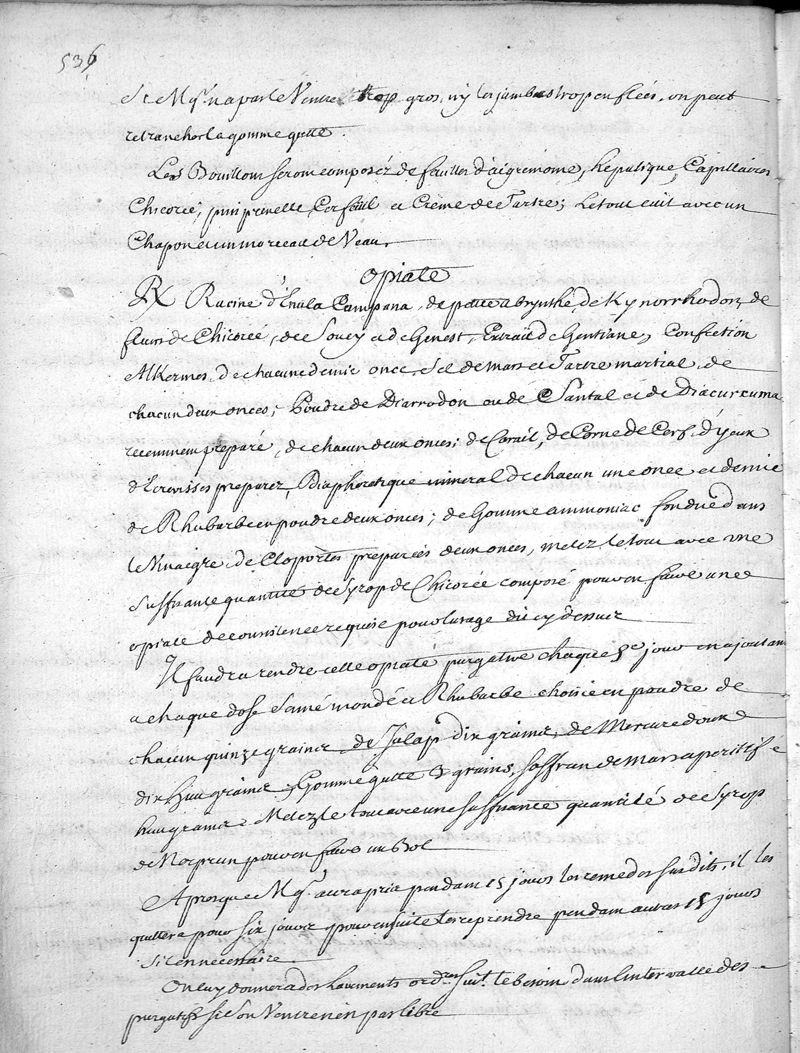 536
Si Mgr. n'a pas le Ventre trop gros, ny les jambes trop enflées, on peut
retrancher la gomme gutte.
Les Bouillons seront composez de feuilles d'aigremoine, hepatique, Capillaires
Chicorée, pimprenelle, Cerfeuil et Crême de Tartre; le tout cuit avec un
Chapon et un morceau de Veau.
Opiate
R Racine d'Enula Campana, de patte absynthe, de Kynorrhodon, de
fleurs de Chicorée, de Soucy et de Genest, Extrait de Gentiane, Confection
Alkermes, de chacun demie once, Sel de mars et Tartre martial, de
chacun deux onces; Poudre de Diarrodon ou de Santal et de Diacurcuma
recemment preparé, de chacun deux onces; de Corail, de Corne de Cerf, d'yeux
d'Ecrevisses preparez, Diaphoretique mineral de chacun une once et demie
de Rhubarbe en poudre deux onces; de Gomme ammoniac fondüe dans
le Vinaegre, de Cloportes preparées deux onces, melez le tout avec une
suffisante quantité de Syrop de Chicorée composé pour en faire une
opiate de consistence requise pour l'usage du cy dessus
Il faudra rendre cette opiate purgative chaque 5e jour en ajoutant
a chaque dose Sené mondé et Rhubarbe choisie en poudre de
chacun quinze grains, de Jalap dix grains, de Mercure doux
dix huit grains, Gomme gutte 3 grains, saffran de Mars aperitif
huit grains. Melez le tout avec une suffisante quantité de Syrop
de Nerprun pour en faire un Bol
Apres que Mgr. aura pris pendant 15 jours les remedes susdits, il les
quittera pour six jours, pour ensuite les reprendre pendant autres 15 jours
Si il en necessaire
On luy donnera des lavements ordres. suivt. le besoin dans l'intervalle des
purgatifs si son Ventre n'en pas libre